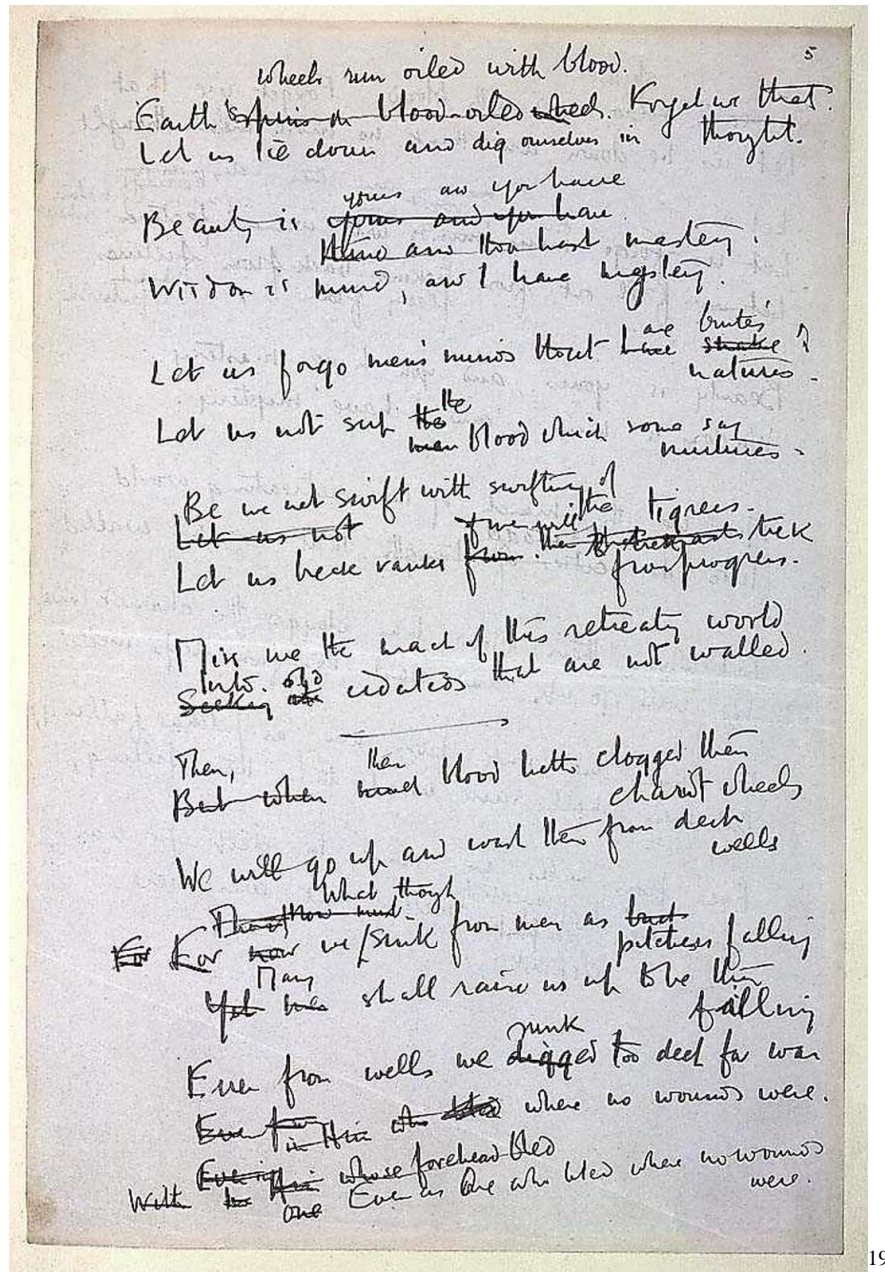 5
wheels run oiled with blood.
Earth's spins on blood-oiled wheels. Forget we that.
Let us lie down and dig ourselves in thought.
yours and you have
Beauty is yours and you have
thine and thou hast mastery.
Wisdom is mine, and I have mystery.
are brutes'
Let us forgo men's minds that have
natures.
the
Let us not sup the blood which some say
nurtures.
Be we not swift with swiftness of the tigress.
Let us not
Let us break ranks from trek
from progress.
Miss we the march of this retreating world
Into old
Seeking citadels that are not walled.
Then, their
But when blood hath clogged their
chariot wheels
We will go up and wash them from deep
wells
What though
For For now we sink from men as
pitchers falling
Many
Yet shall raise us up to be their
filling
sunk
Even from wells we digged too deep for war
Even in Him who bled where no wounds were.
Even in Him whose forehead bled
With one Even as One who bled where no wounds
were.
19